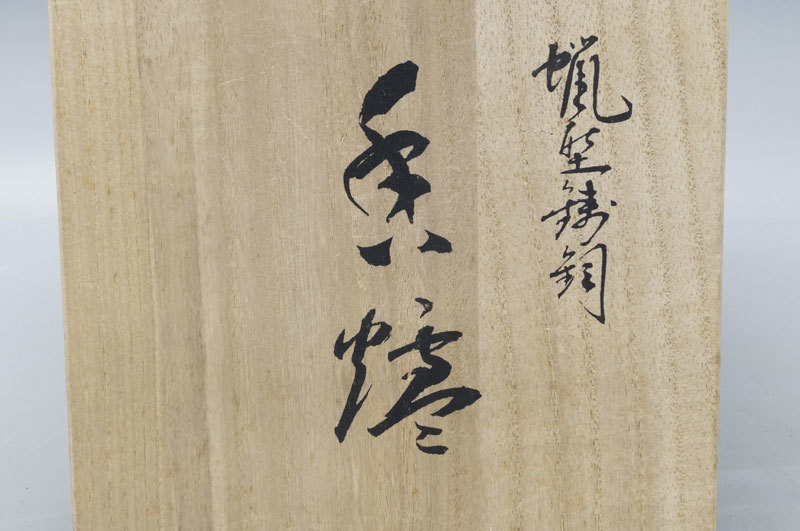 蝋型鋳銅
香爐